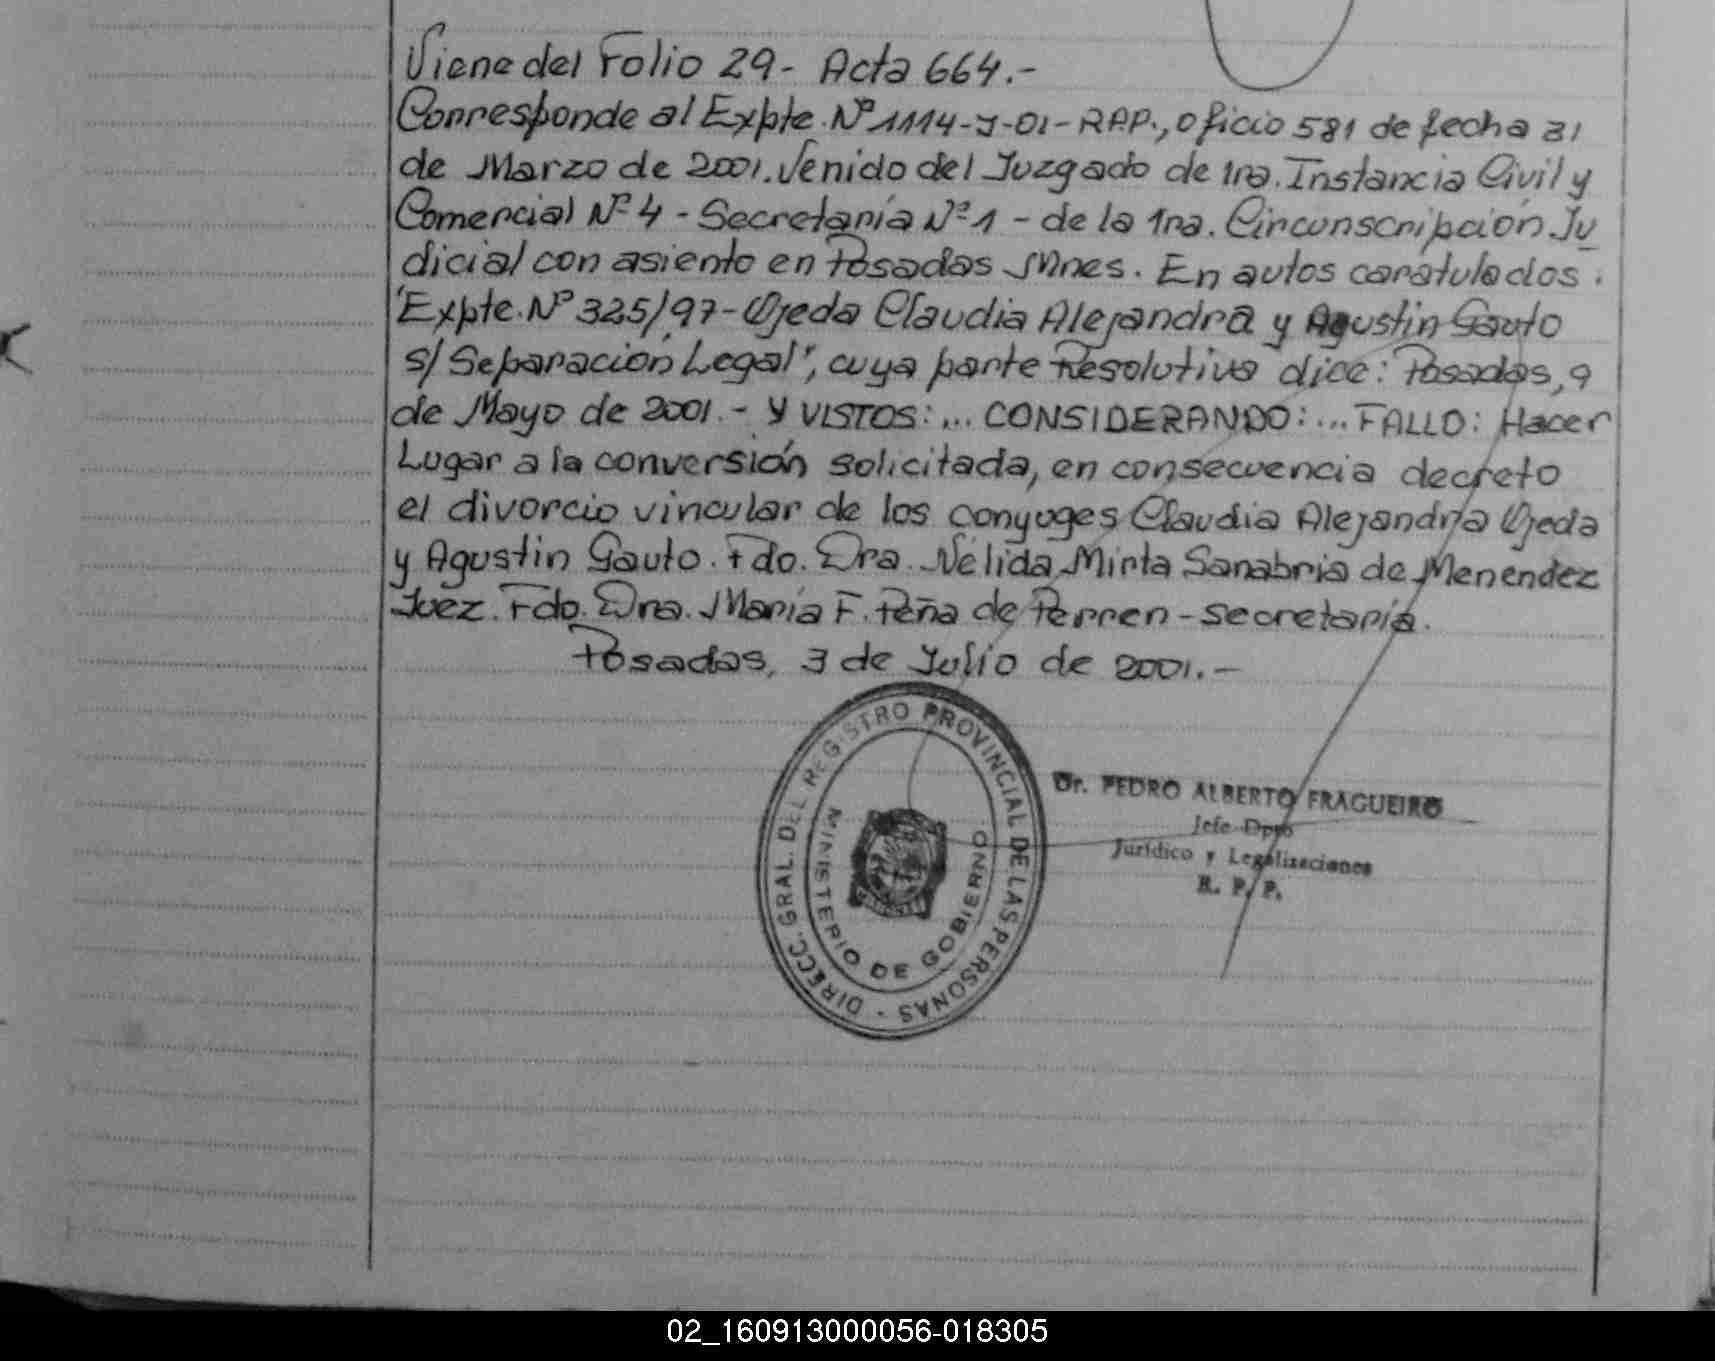 Viene del Folio 29- Acta 664.-
Corresponde al Expte. Nº 1114-J-01-RPP., oficio 581 de fecha 31
de Marzo de 2001. Venido del Juzgado de 1ra. Instancia Civil y
Comercial Nº 4 - Secretaría Nº 1 - de la 1ra. Circunscripción Ju
dicial con asiento en Posadas Mnes. En autos caratulados:
"Expte. Nº 325/97-Ojeda Claudia Alejandra y Agustin Gauto
s/ Separación Legal", cuya parte Resolutiva dice: Posadas, 9
de Mayo de 2001.- Y VISTOS:... CONSIDERANDO:... FALLO: Hacer
Lugar a la conversión solicitada, en consecuencia decreto
el divorcio vincular de los conyuges Claudia Alejandra Ojeda
y Agustin Gauto. Fdo. Dra. Nélida Mirta Sanabria de Menendez
Juez. Fdo. Dra. María F. Peña de Perren - Secretaría.
Posadas, 3 de Julio de 2001.-
DIRECC. GRAL. DEL REGISTRO PROVINCIAL DE LAS PERSONAS -
MINISTERIO DE GOBIERNO
Dr. PEDRO ALBERTO FRAGUEIRO
Jefe Dpto
Jurídico y Legalizaciones
R. P. P.
02_160913000056-018305